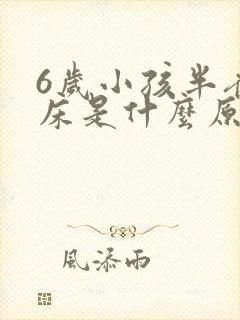 6歲小孩半
床是什麼原
風添雨